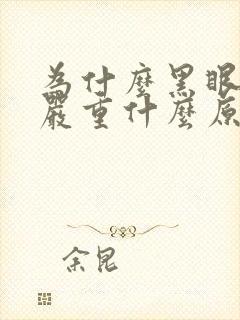 為什麼黑眼
嚴重什麼原
余昆